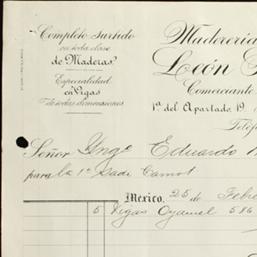 Completo surtido
en toda clase
de Maderas
Especialidad
en Vigas
de todas dimensiones
Maderería
León
Comerciante
1a del Apartado 19
Teléf
Señor Yngo Eduardo
para la 1a Sadi Carnot
México, 25 de Febre
5 Vigas Oyamel 586